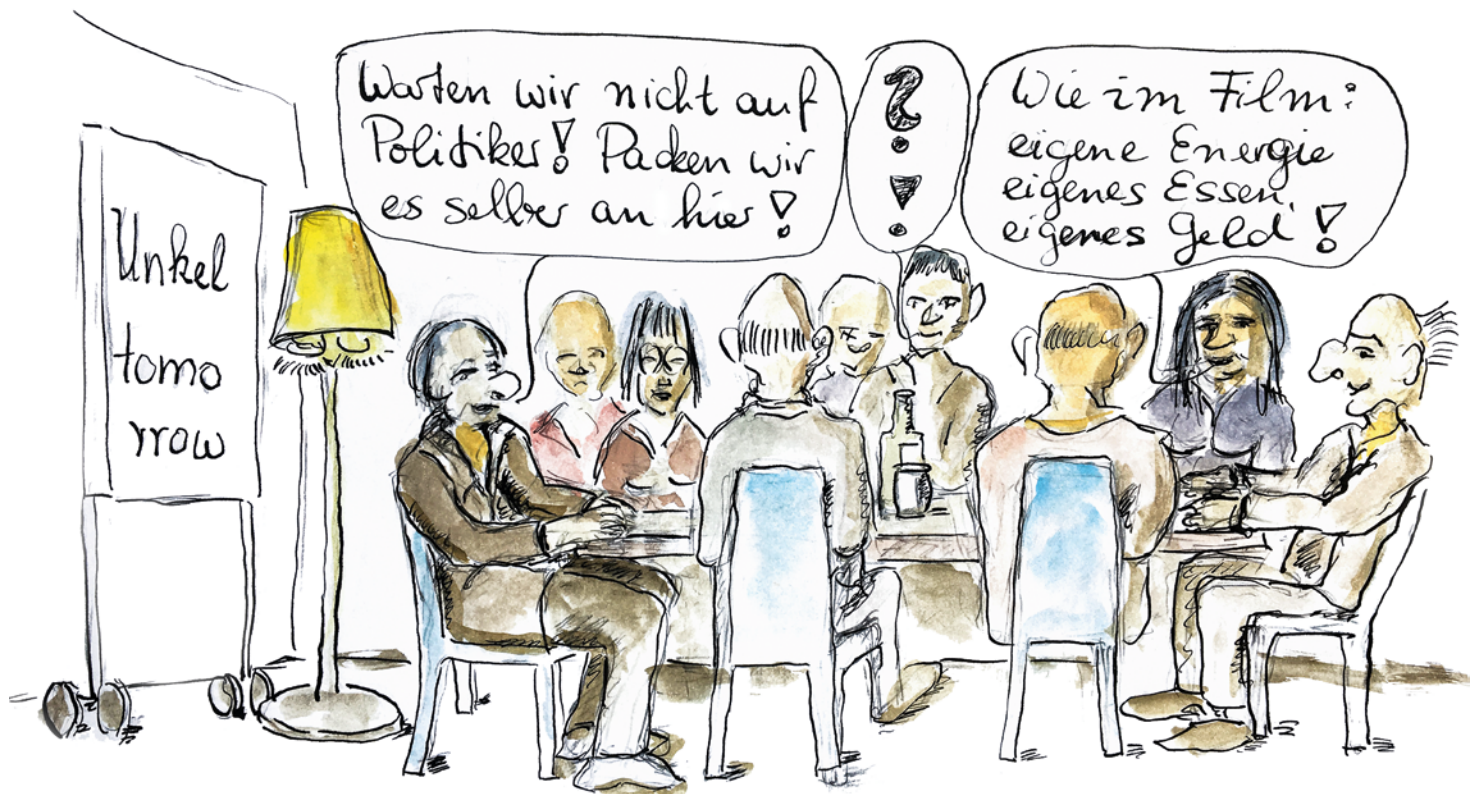 Unkel
tomo
rrow
Warten wir nicht auf
Politiker! Packen wir
es selber an hier!
?
!
Wie im Film:
eigene Energie
eigenes Essen,
eigenes Geld!